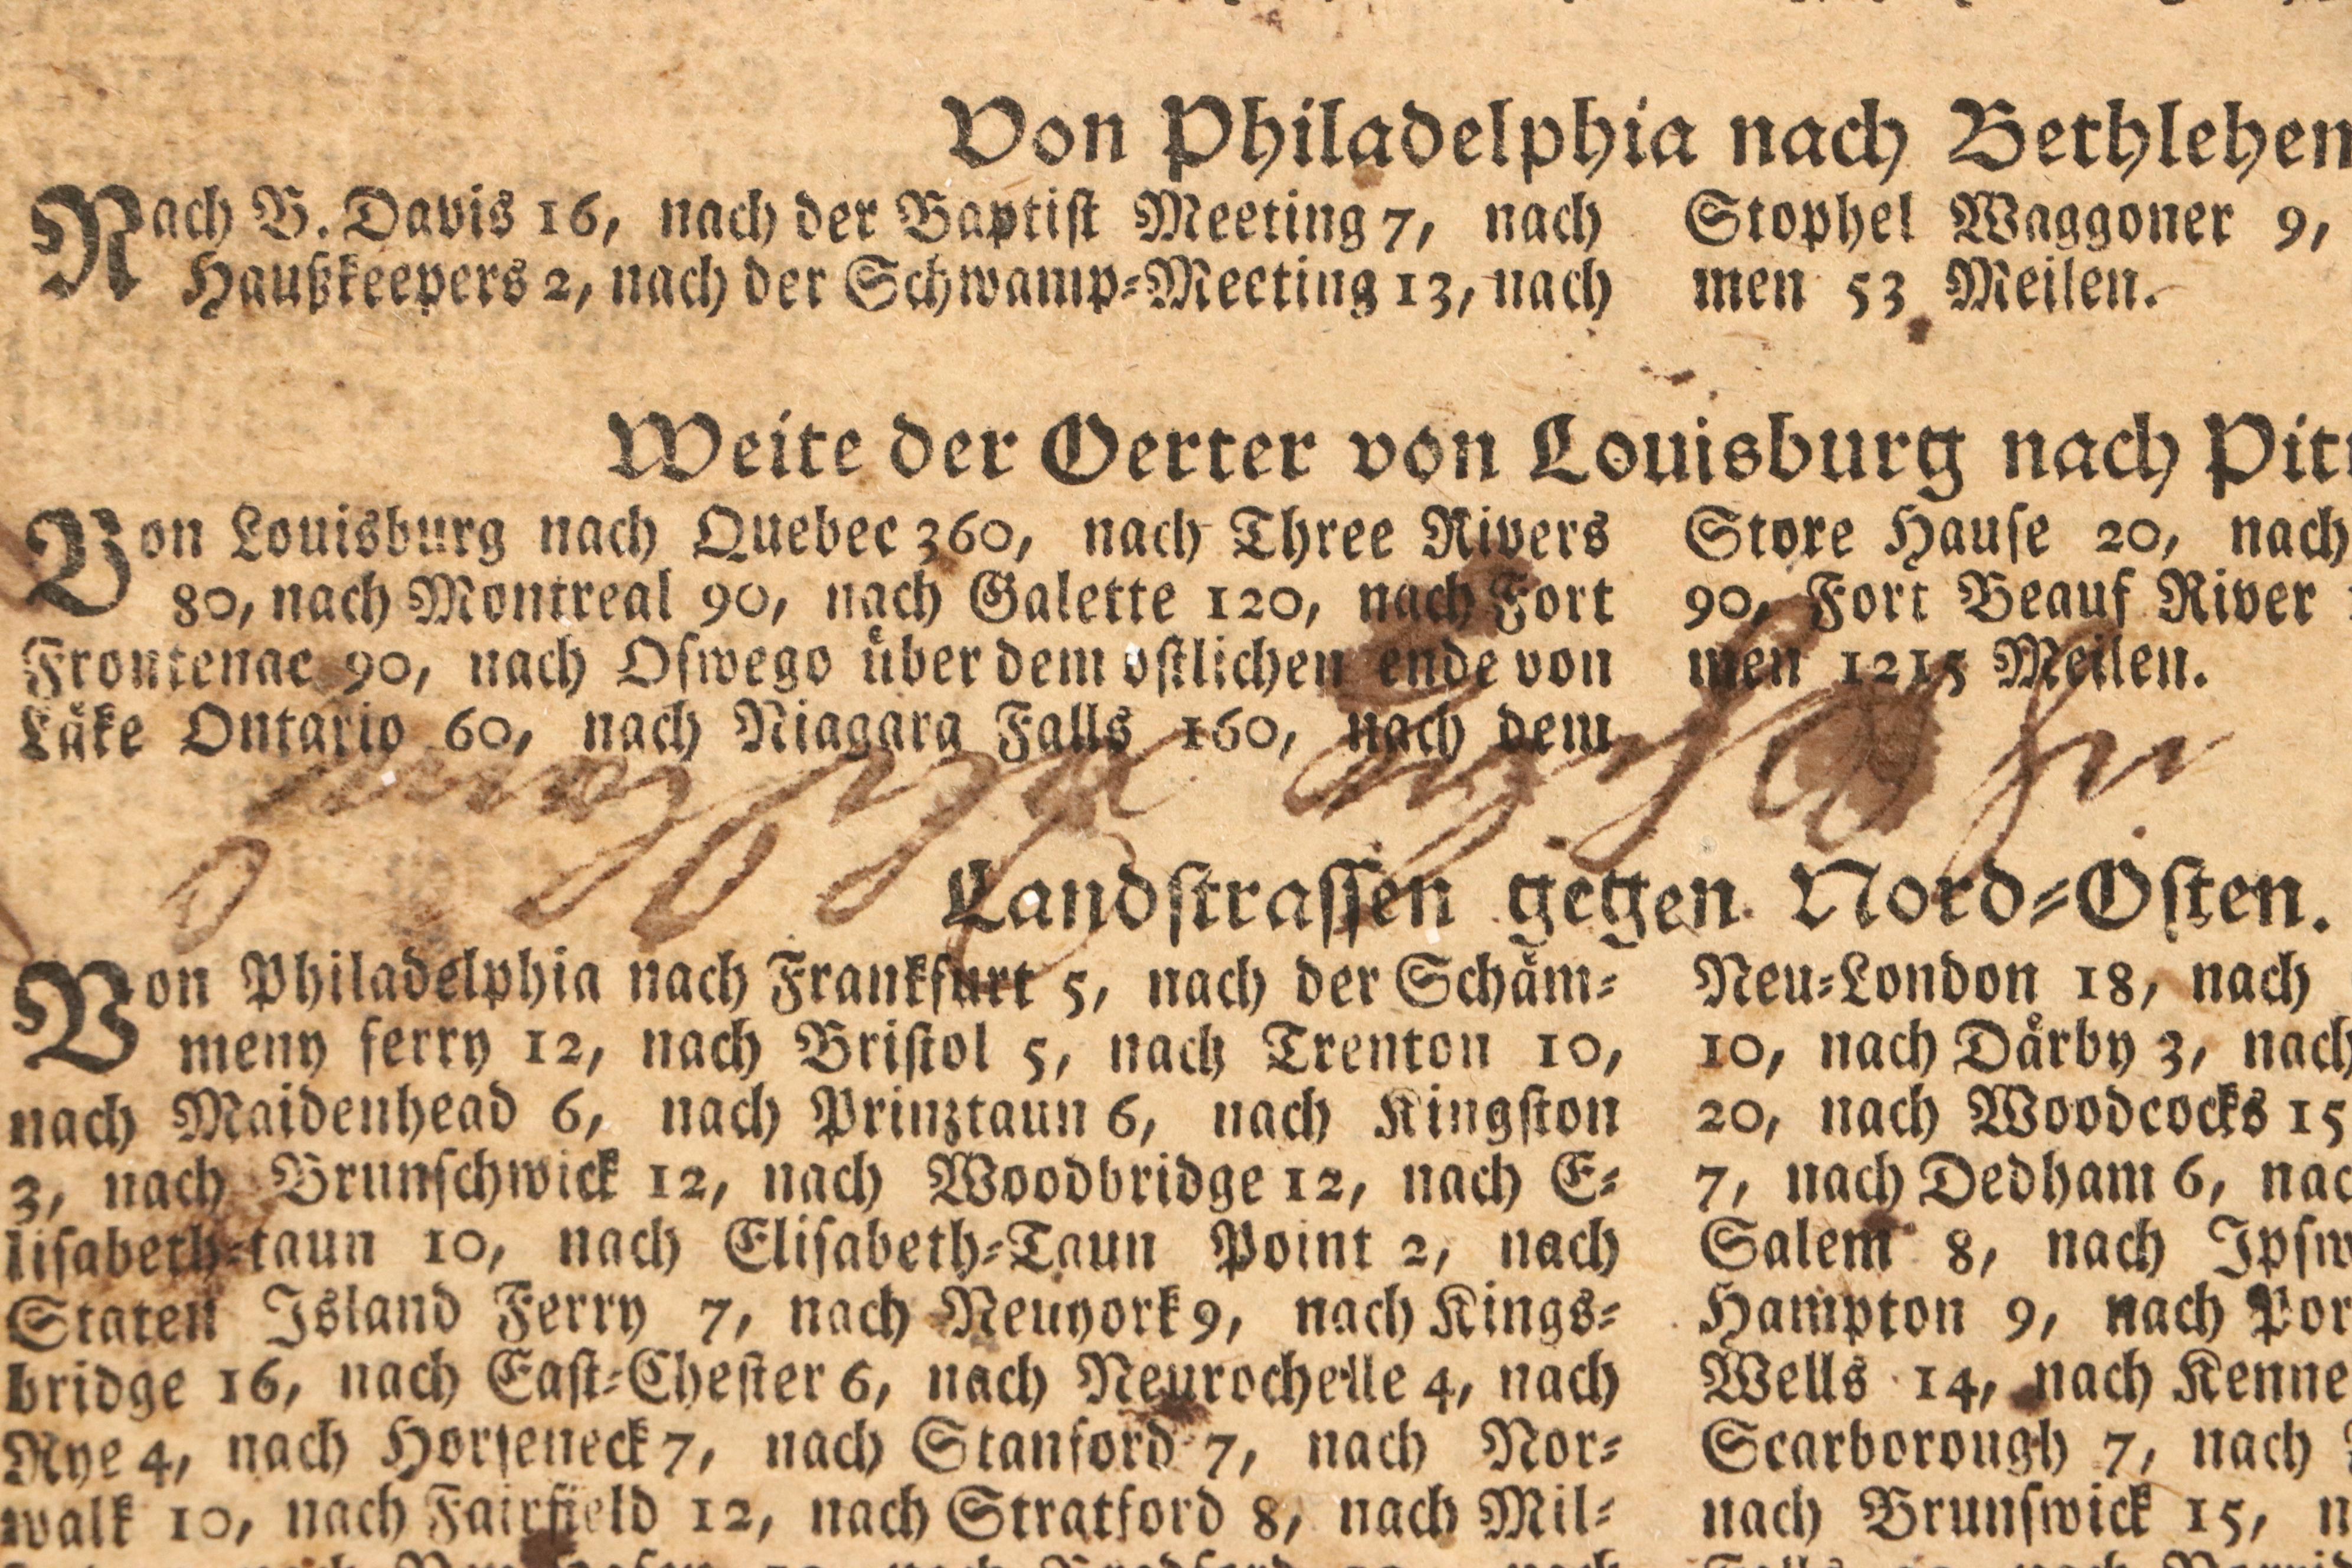 Von Philadelphia nach Bethlehem
Nach B. Davis 16, nach der Baptist Meeting 7, nach
Haußkeepers 2, nach der Schwamp-Meeting 13, nach
Stophel Waggoner 9,
men 53 Meilen.
Weite der Oerter von Louisburg nach Pit
Von Louisburg nach Quebec 360, nach Three Rivers
80, nach Montreal 90, nach Galette 120, nach Fort
Frontenac 90, nach Oswego über dem ostlichen ende von
Läke Ontario 60, nach Niagara Falls 160, nach dem
Store Hause 20, nach
90, Fort Beauf River
men 1215 Meilen.
Landstrassen gegen Nord-Osten.
Von Philadelphia nach Frankfurt 5, nach der Schäm-
meny ferry 12, nach Bristol 5, nach Trenton 10,
nach Maidenhead 6, nach Prinztaun 6, nach Kingston
3, nach Brunschwick 12, nach Woodbridge 12, nach E-
lisabeth-taun 10, nach Elisabeth-Taun Point 2, nach
Staten Island Ferry 7, nach Neuyork 9, nach Kings-
bridge 16, nach East-Chester 6, nach Neurochelle 4, nach
Rye 4, nach Horseneck 7, nach Stanford 7, nach Nor-
walk 10, nach Fairfield 12, nach Stratford 8, nach Mil-
Neu-London 18, nach
10, nach Därby 3, nach
20, nach Woodcocks 15
7, nach Dedham 6, nac
Salem 8, nach Ipsw
Hampton 9, nach Por
Wells 14, nach Kenne
Scarborough 7, nach
nach Brunswick 15,